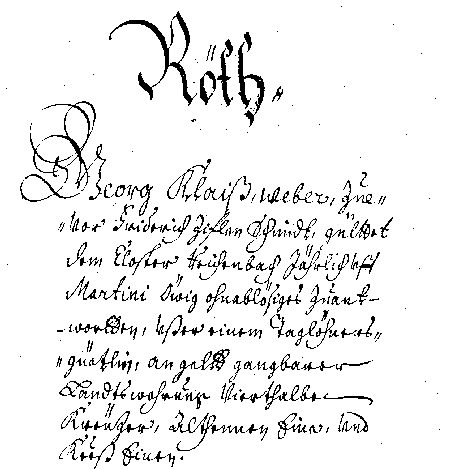 Röth.
Georg Klaiß, weber, Zue-
vor Friderich Zifflen Schmidt, gülttet
dem Closter Reichenbach Jährlich uff
Martini Ewig ohnablösiges Zuant-
wortten, Vßer einem Taglöhners-
güettlin, an geltt gangbarer
Landtswehrung Vierthalbe
Kreützer, Althennen Eine, und
Käeß Einen.